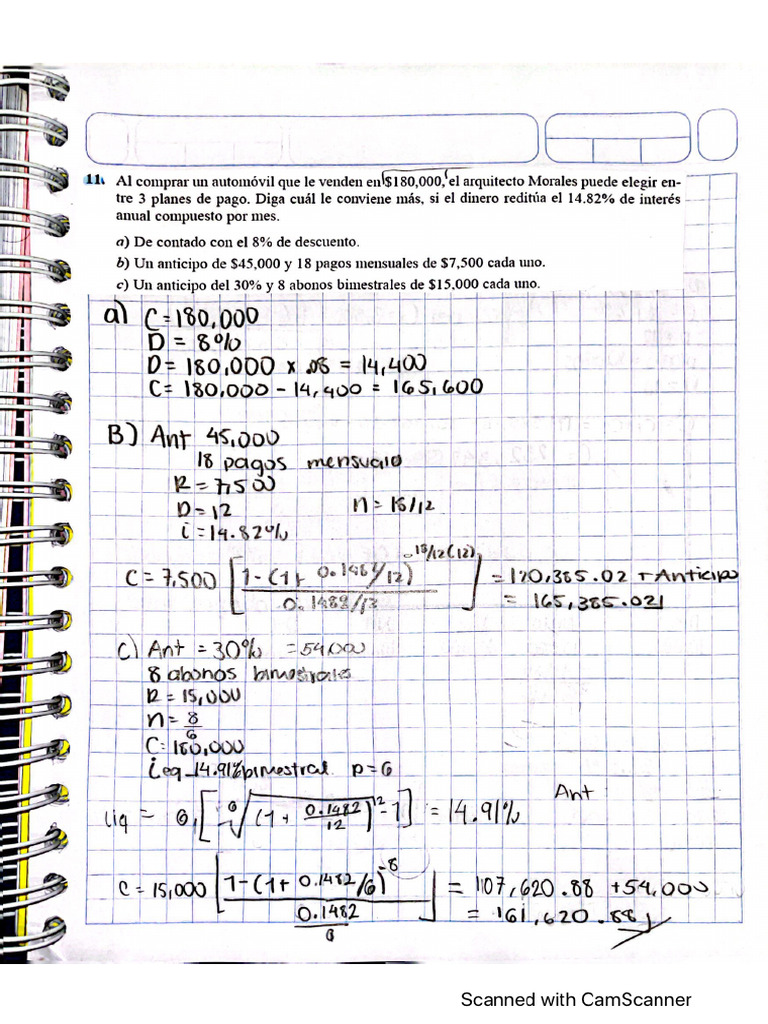 11. Al comprar un automóvil que le venden en $180,000, el arquitecto Morales puede elegir en-
tre 3 planes de pago. Diga cuál le conviene más, si el dinero reditúa el 14.82% de interés
anual compuesto por mes.
a) De contado con el 8% de descuento.
b) Un anticipo de $45,000 y 18 pagos mensuales de $7,500 cada uno.
c) Un anticipo del 30% y 8 abonos bimestrales de $15,000 cada uno.
a) C = 180,000
D = 8%
D = 180,000 x .08 = 14,400
C = 180,000 - 14,400 = 165,600
B) Ant 45,000
18 pagos mensuals
R = 7,500
D = 12 n = 18/12
i = 14.82%
C = 7,500 [1-(1+ 0.1482/12)^-18/12(12) / 0.1482/12] = 120,385.02 + Anticipo
= 165,385.021
C) Ant = 30% = 54,000
8 abonos bimestrales
R = 15,000
n = 8/6
C: 180,000
ieq 14.91% bimestral p = 6
Ant
iiq = 6 [6√(1 + 0.1482/12)^12 - 1] = 14.91%
C = 15,000 [1-(1+ 0.1482/6)^-8 / 0.1482/6] = 107,620.88 + 54,000
= 161,620.88
Scanned with CamScanner